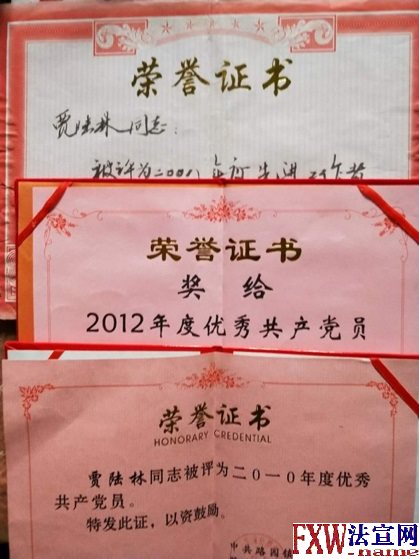 荣誉证书
贾陆林同志:
被评为二00八年度先进工作者
荣誉证书
奖给
2012年度优秀共产党员
荣誉证书
HONORARY CREDENTIAL
贾陆林同志被评为二〇一〇年度优秀
共产党员。
特发此证,以资鼓励。
中共路园镇
FXW法宣网
.name